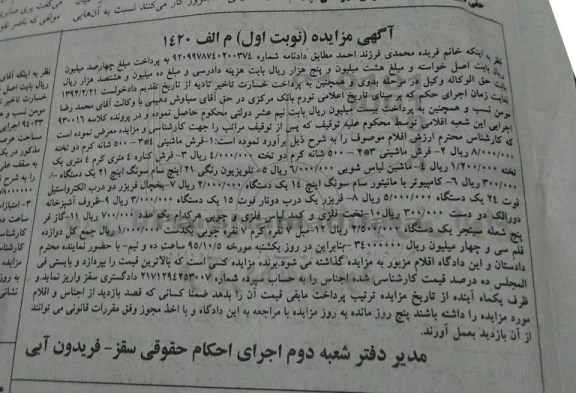 آگهی مزایده (نوبت اول) م الف ۱۴۲۰
نظر به اینکه خانم فریده محمدی فرزند احمد مطابق دادنامه شماره ۹۲۰۹۹۷۸۷۴۰۲۰۰۳۷۴ به پرداخت مبلغ چهارصد میلیون
ریال بابت اصل خواسته و مبلغ هشت میلیون و پنج هزار ریال بابت هزینه دادرسی و مبلغ ده میلیون و هشتصد هزار ریال
بابت حق الوکاله وکیل در مرحله بدوی و همچنین به پرداخت خسارت تاخیر تادیه از تاریخ تقدیم دادخواست ۱۳۹۲/۲/۲۱
لغایت زمان اجرای حکم که بر مبنای تاریخ اعلامی تورم بانک مرکزی در حق آقای سیاوش دهیمی با وکالت آقای محمد رضا
مومن نسب و همچنین به پرداخت بیست میلیون ریال بابت نیم عشر دولتی محکوم حاصل نموده و در پرونده کلاسه ۹۳۰۰۱۶
اجرایی این شعبه اقلامی توسط محکوم علیه توقیف که پس از توقیف مراتب را جهت کارشناسی و مزایده معرفی نموده است
که کارشناس محترم ارزش اقلام موصوف را به شرح ذیل برآورد نموده است: ۱-فرش ماشینی ۳۵۴-۵۰۰ شانه کرم دو تخته
۸/۰۰۰/۰۰۰ ریال ۲- فرش ماشینی ۲۵۳-۵۰۰ شانه کرم دو تخته ۴/۰۰۰/۰۰۰ ریال ۳- فرش کناره ۴ متری کرم ۴ متری یک
تخته ۱/۲۰۰/۰۰۰ ریال ۴- ماشین لباس شویی ۶/۰۰۰/۰۰۰ ریال ۵- تلویزیون رنگی ۲۱ اینچ سام سونگ اینچ ۲۱ یک دستگاه
۳۰۰/۰۰۰ ریال ۶- کامپیوتر با مانیتور سام سونگ اینچ ۱۴ یک دستگاه ۲/۰۰۰/۰۰۰ ریال ۷-یخچال فریزر دو درب الکترواستیل
فوت ۲۴ یک دستگاه ۵/۰۰۰/۰۰۰ ریال ۸- فریزر یک درب دونار فوت ۱۵ یک دستگاه ۳/۰۰۰/۰۰۰ ریال ۹-ظروف آشپزخانه
دورالک دو دست ۳۰۰/۰۰۰ ریال ۱۰- تخت فلزی و کمد لباس فلزی و چوبی هرکدام یک عدد ۷۰۰/۰۰۰ ریال ۱۱-گاز فر
پنج شعله سینجر یک دستگاه ۲/۵۰۰/۰۰۰ ریال ۱۲-مبل ۷ نفره کرم ۷ نفره چوبی یکدست ۱/۰۰۰/۰۰۰ ریال جمع کل دوازده
قلم سی و چهار میلیون ریال ۳۴۰۰۰۰۰۰ -بنابراین در روز یکشنبه مورخه ۹۵/۱۰/۵ ساعت ده و نیم- با حضور نماینده محترم
دادستان و این دادگاه اقلام مزبور به مزایده گذاشته می شود.برنده مزایده کسی است که بالاترین قیمت را بپردازد و بایستی فی
المجلس ده درصد قیمت کارشناسی شده اجناس را به حساب سپرده شماره ۲۱۷۱۲۹۴۲۵۳۰۰۷ دادگستری سقز واریز نماید و
ظرف یکماه آینده از تاریخ مزایده ترتیب پرداخت مابقی قیمت آن را بدهد ضمنا کسانی که قصد بازدید از اجناس و اقلام
مورد مزایده را داشته باشند پنج روز مانده به روز مزایده با مراجعه به این دادگاه و با اخذ مجوز وفق مقررات قانونی می توانند
از آن بازدید بعمل آورند.
مدیر دفتر شعبه دوم اجرای احکام حقوقی سقز- فریدون آبی